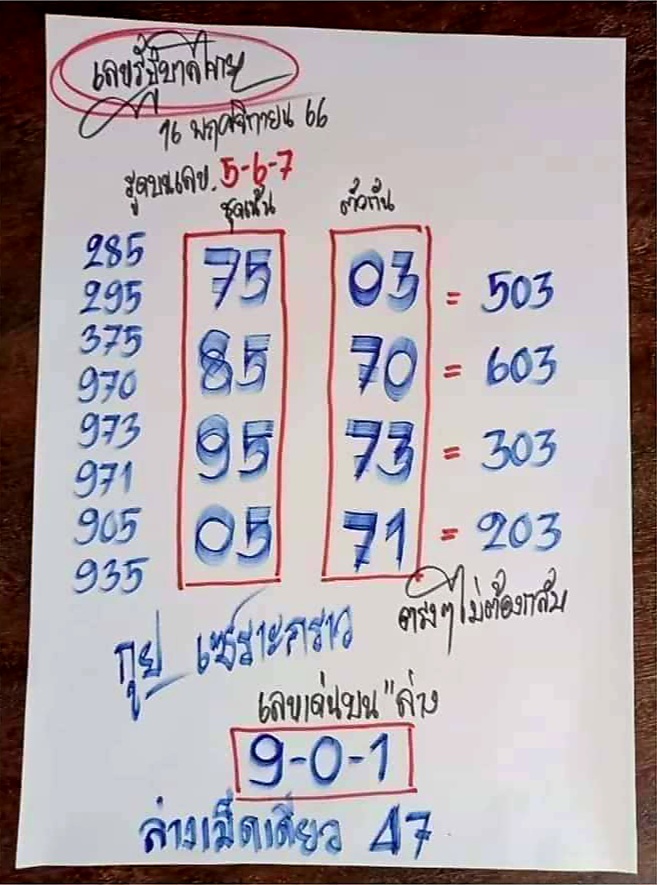 เลขรัฐบาลไทย
16 พฤศจิกายน 66
รูดบนเลข. 5-6-7
ชุดเน้น ตัวกัน
285
75 03 = 503
295
375
85 70 = 603
970
973
95 73 = 303
971
905
05 71 = 203
935
ตรงๆ ไม่ต้องกลับ
กุย
เลขเด่นบน"ล่าง
9-0-1
ล่างเม็ดเดียว 47